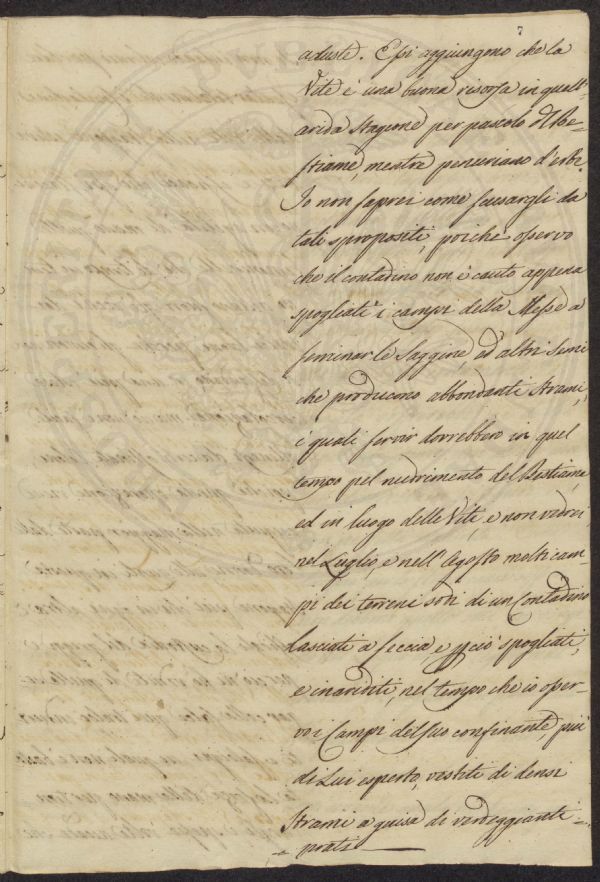 7
aduste. Essi aggiungono che la
Vite è una buona risorsa in quell'
arida stagione per pascolo del Be=
stiame, mentre penuriano d'erbe.
Io non saprei come scusargli da
tali spropositi, poichè osservo
che il contadino non è cauto appena
spogliati i campi della Messe a
seminar le Saggine, ed altri Semi
che producono abbondanti Strami,
i quali servir dovrebbero in quel
tempo pel nudrimento del Bestiame,
ed in luogo delle Viti, e non vedrei
nel Luglio, e nell'Agosto molti cam=
pi dei terreni sodi di un Contadino
lasciati a seccia e spogliati,
e inariditi, nel tempo che io osser=
vo i Campi del suo confinante, più
di Lui esperto, vestiti di densi
Strami a guisa di verdeggianti
= prati